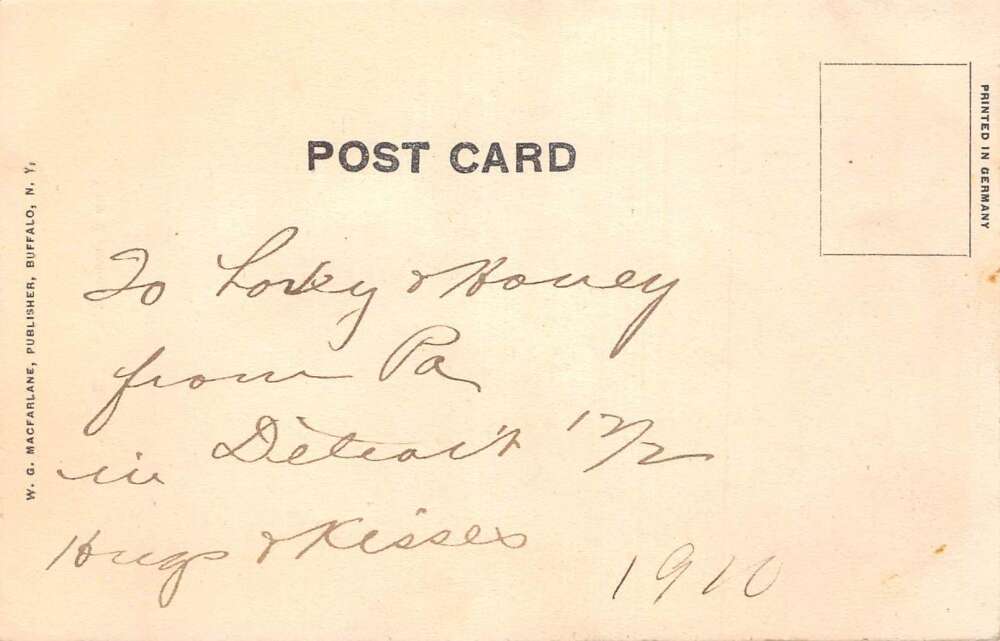 POST CARD
PRINTED IN GERMANY
W. G. MACFARLANE, PUBLISHER, BUFFALO, N. Y.
To & Honey
from Pa
in Detroit 12/2
Hugs & Kisses
1910